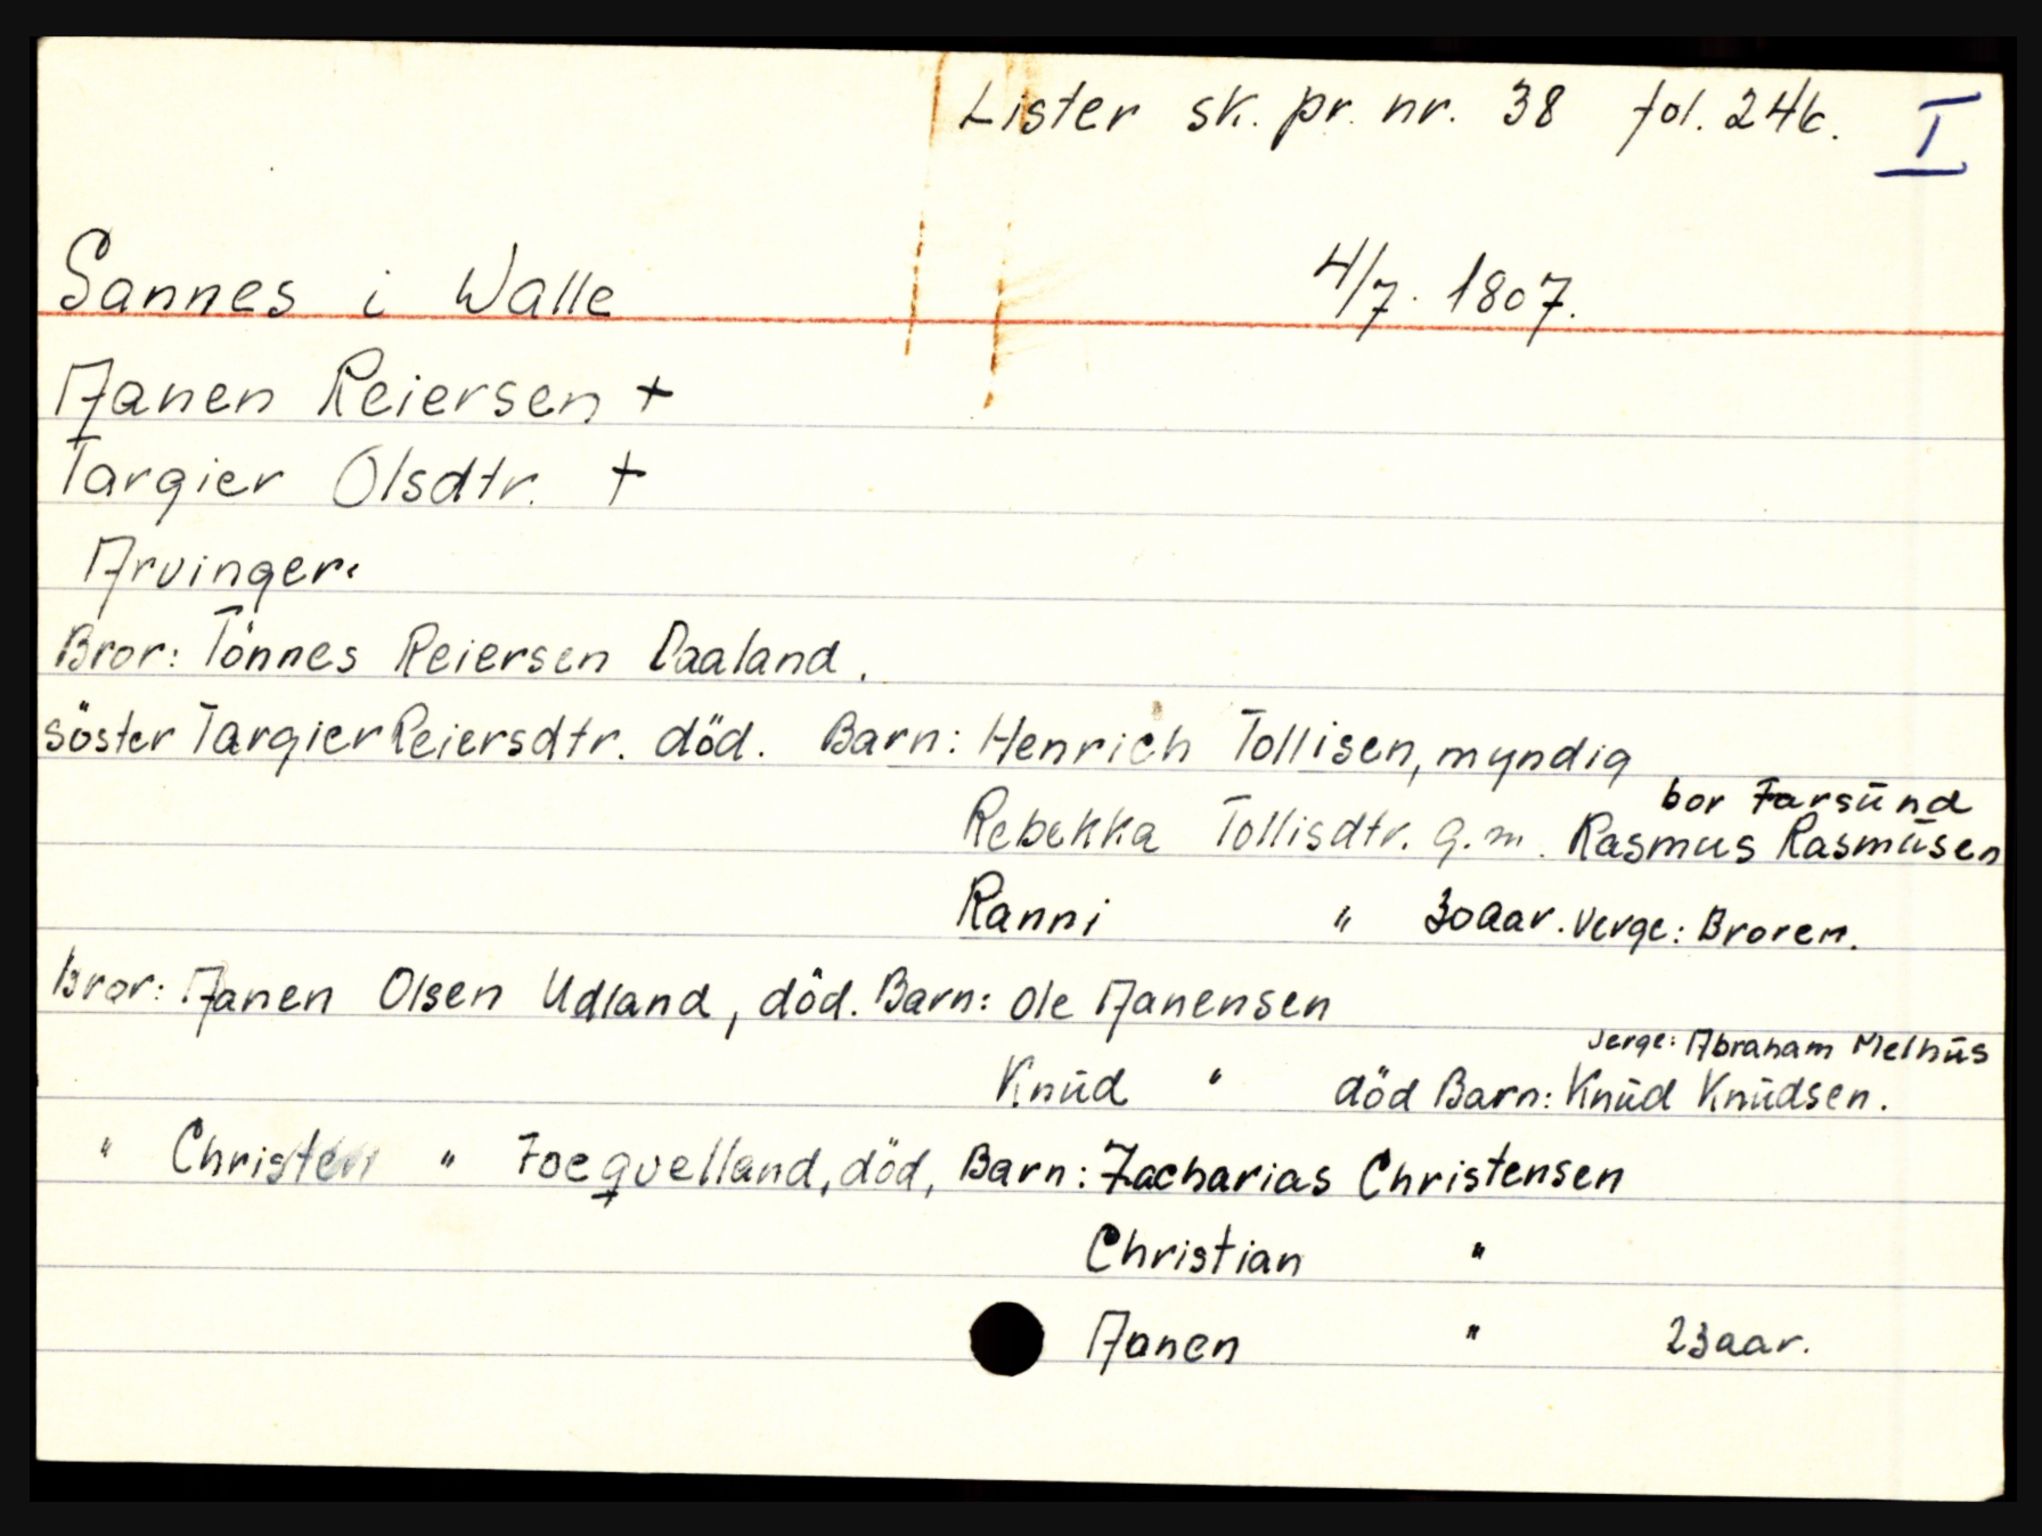 Lister sk. pr. nr. 38 fol. 246. I
Sannes i Walle 4/7. 1807.
Aanen Reiersen +
Targier Olsdtr. +
Arvinger.
Bror: Tönnes Reiersen Daaland.
söster Targier Reiersdtr. död. Barn: Henrich Tollisen, myndig
bor Farsünd
Rebekka Tollisdtr. g.m. Rasmus Rasmüsen
Ranni " 30 aar. Verge: Broren.
Bror: Aanen Olsen Udland, död. Barn: Ole Aanensen
Verge: Abraham Melhüs
Knüd " död Barn: Knüd Knüdsen.
" Christen " Foeqvelland, död, Barn: Zacharias Christensen
Christian "
Aanen " 23 aar.